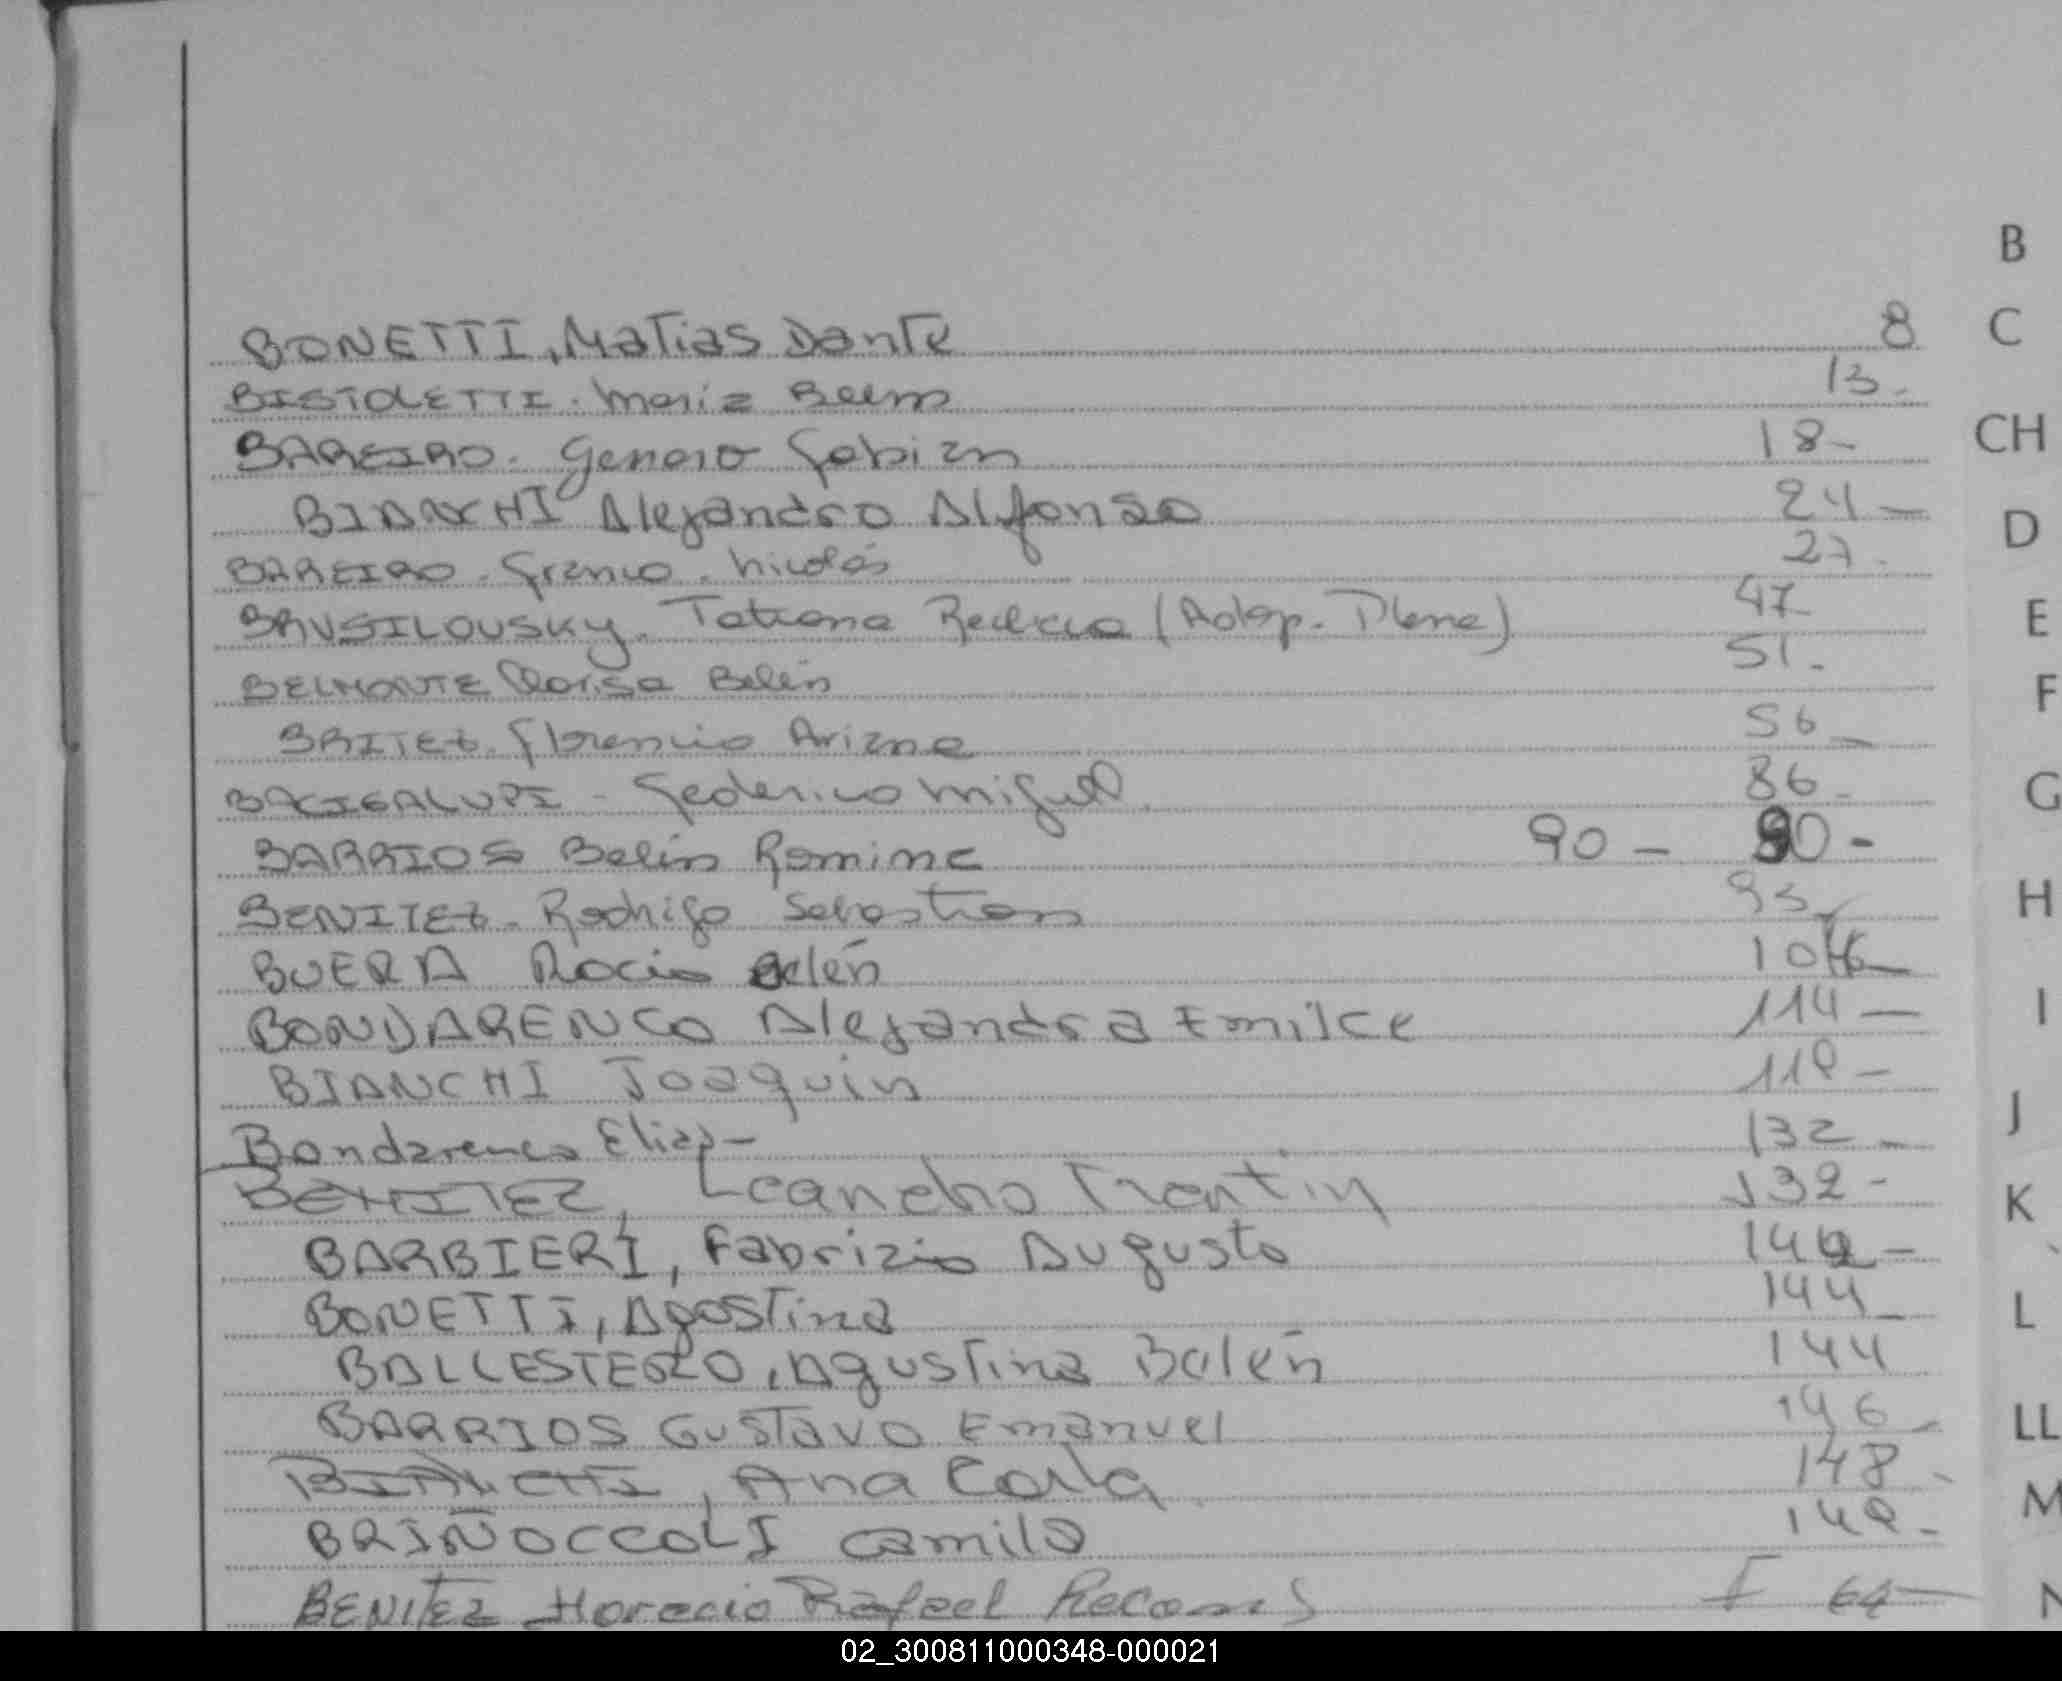 B
BONETTI, Matias Dante 8
C
BISTOLETTI. Maria Belem 13.
BAREIRO. Genaro Fabian 18-
CH
BIANCHI Alejandro Alfonso 24-
D
BAREIRO. Franco. Nicolás 27.
BRUSILOUSKY. Tatiana Rebeca (Adop. Plena) 47
E
BELMONTE Clarisa Belén 51.
F
BRITEZ. Florencia Ariana 56-
BACIGALUPI - Federico Miguel. 86-
G
BARRIOS Belén Romina 90- 90-
BENITEZ. Rodrigo Sebastian
H
BUERA Rocio Belén
BONDARENCO Alejandra Emilce 114-
I
BIANCHI Joaquin
J
Bondarenco Elias- 132-
BENITEZ, Leandro Trentin 132-
K
BARBIERI, Fabrizio Augusto
BONETTI, Agostina 144-
L
BALLESTERO, Agustina Belén 144
BARRIOS Gustavo Emanuel 146-
LL
BIANCHI, Ana Carla 148-
M
BRIÑOCCOLI Camila
N
BENITEZ Horacio Rafael
02_300811000348-000021